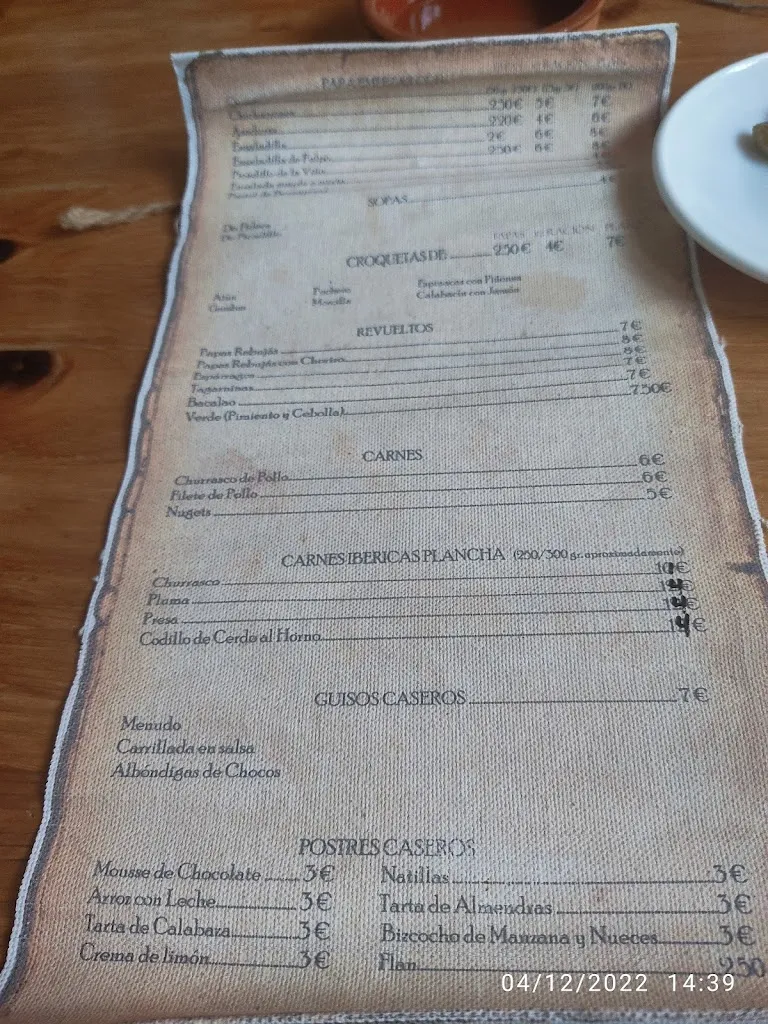 PARA EMPEZAR
Chicharrones 2'50€ 5€ 7€
Aliños 2'20€ 4€ 6€
Ensaladilla 2€ 6€ 8€
Ensaladilla de Pulpo 2'50€ 6€ 8€
SOPAS 4€
De Pollo
De Picadillo
TAPAS
CROQUETAS DE 2'50€ 4€ 7€
Atún Puchero Espinacas con Piñones
Gambas Morcilla Calabacín con Jamón
REVUELTOS
Papas Rebujás 7€
Papas Rebujás con Chorizo 8€
Espárragos 8€
Tagarninas 7€
Bacalao 7€
Verde (Pimiento y Cebolla) 7'50€
CARNES
Churrasco de Pollo 6€
Filete de Pollo 6€
Nugets 5€
CARNES IBERICAS PLANCHA (250/300 gr. aproximadamente)
Churrasco €
Pluma 14€
Presa 14€
Codillo de Cerdo al Horno 14€
GUISOS CASEROS 7€
Menudo
Carrillada en salsa
Albóndigas de Chocos
POSTRES CASEROS
Mousse de Chocolate 3€ Natillas 3€
Arroz con Leche 3€ Tarta de Almendras 3€
Tarta de Calabaza 3€ Bizcocho de Manzana y Nueces 3€
Crema de limón 3€ Flan 2'50
04/12/2022 14:39